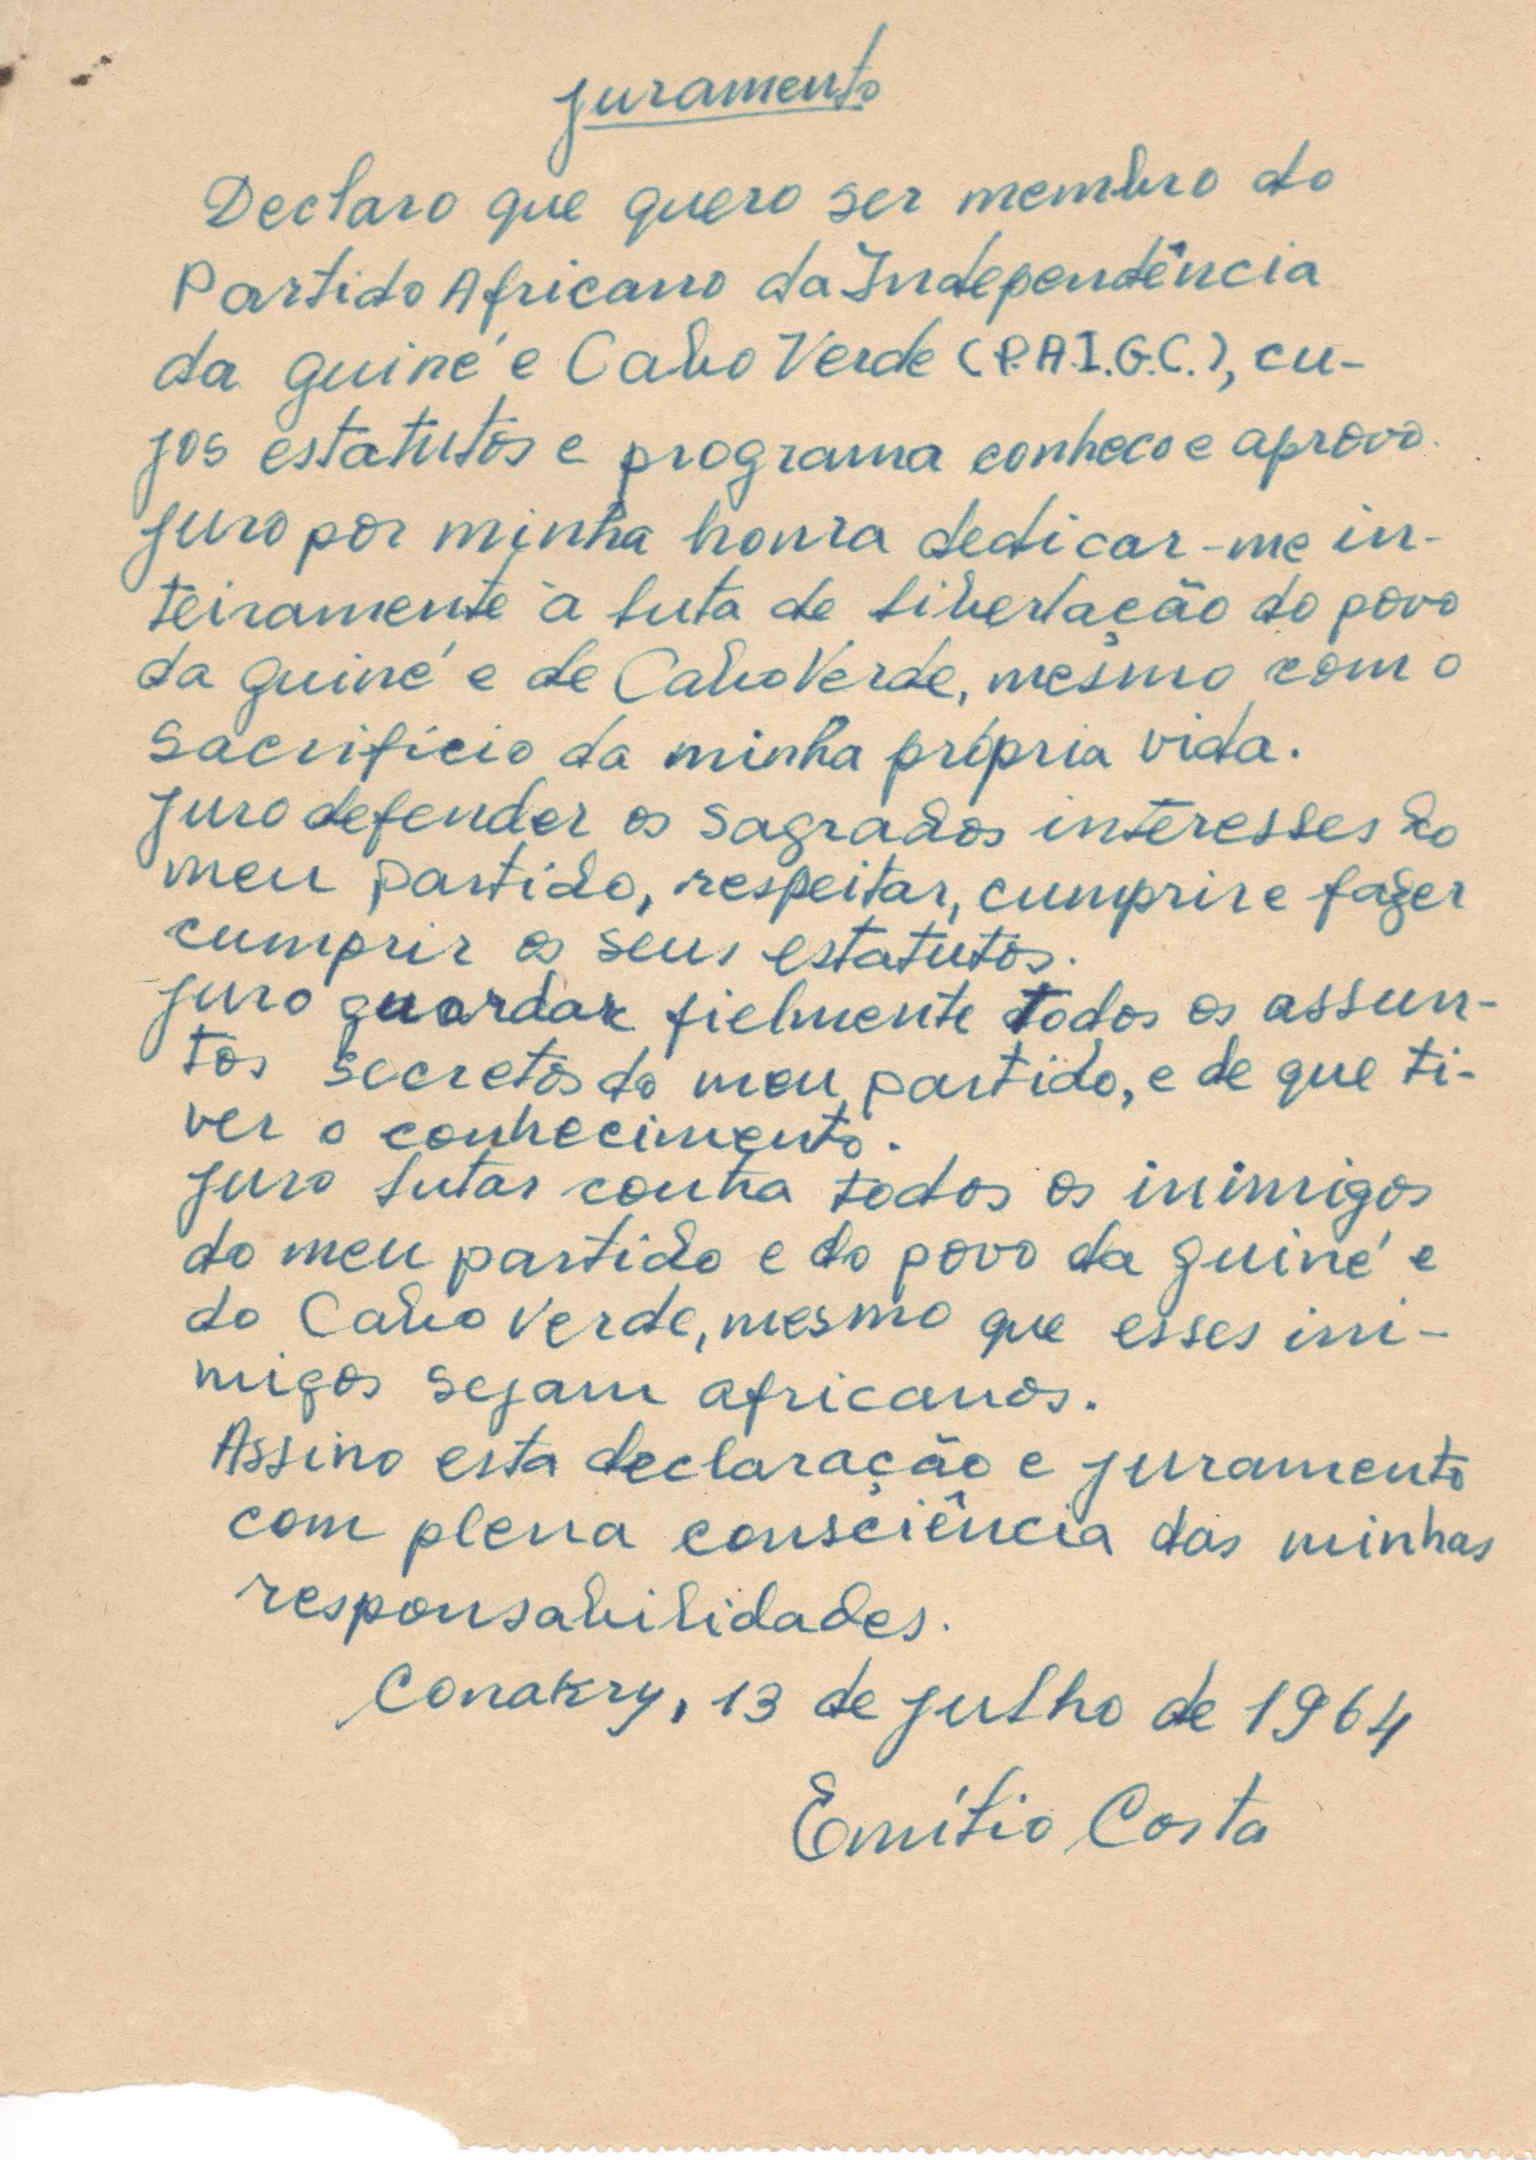 Juramento
Declaro que quero ser membro do
Partido Africano da Independência
da Guiné e Cabo Verde (P.A.I.G.C.), cu-
jos estatutos e programa conheco e aprovo.
Juro por minha honra dedicar-me in-
teiramente à luta de libertação do povo
da Guiné e de Cabo Verde, mesmo com o
sacrificio da minha própria vida.
Juro defender os sagrados interesses do
meu partido, respeitar, cumprir e fazer
cumprir os seus estatutos.
Juro guardar fielmente todos os assun-
tos secretos do meu partido, e de que ti-
ver o conhecimento.
Juro lutar contra todos os inimigos
do meu partido e do povo da Guiné e
do Cabo Verde, mesmo que esses ini-
migos sejam africanos.
Assino esta declaração e juramento
com plena consciência das minhas
responsabilidades.
Conakry, 13 de julho de 1964
Emílio Costa